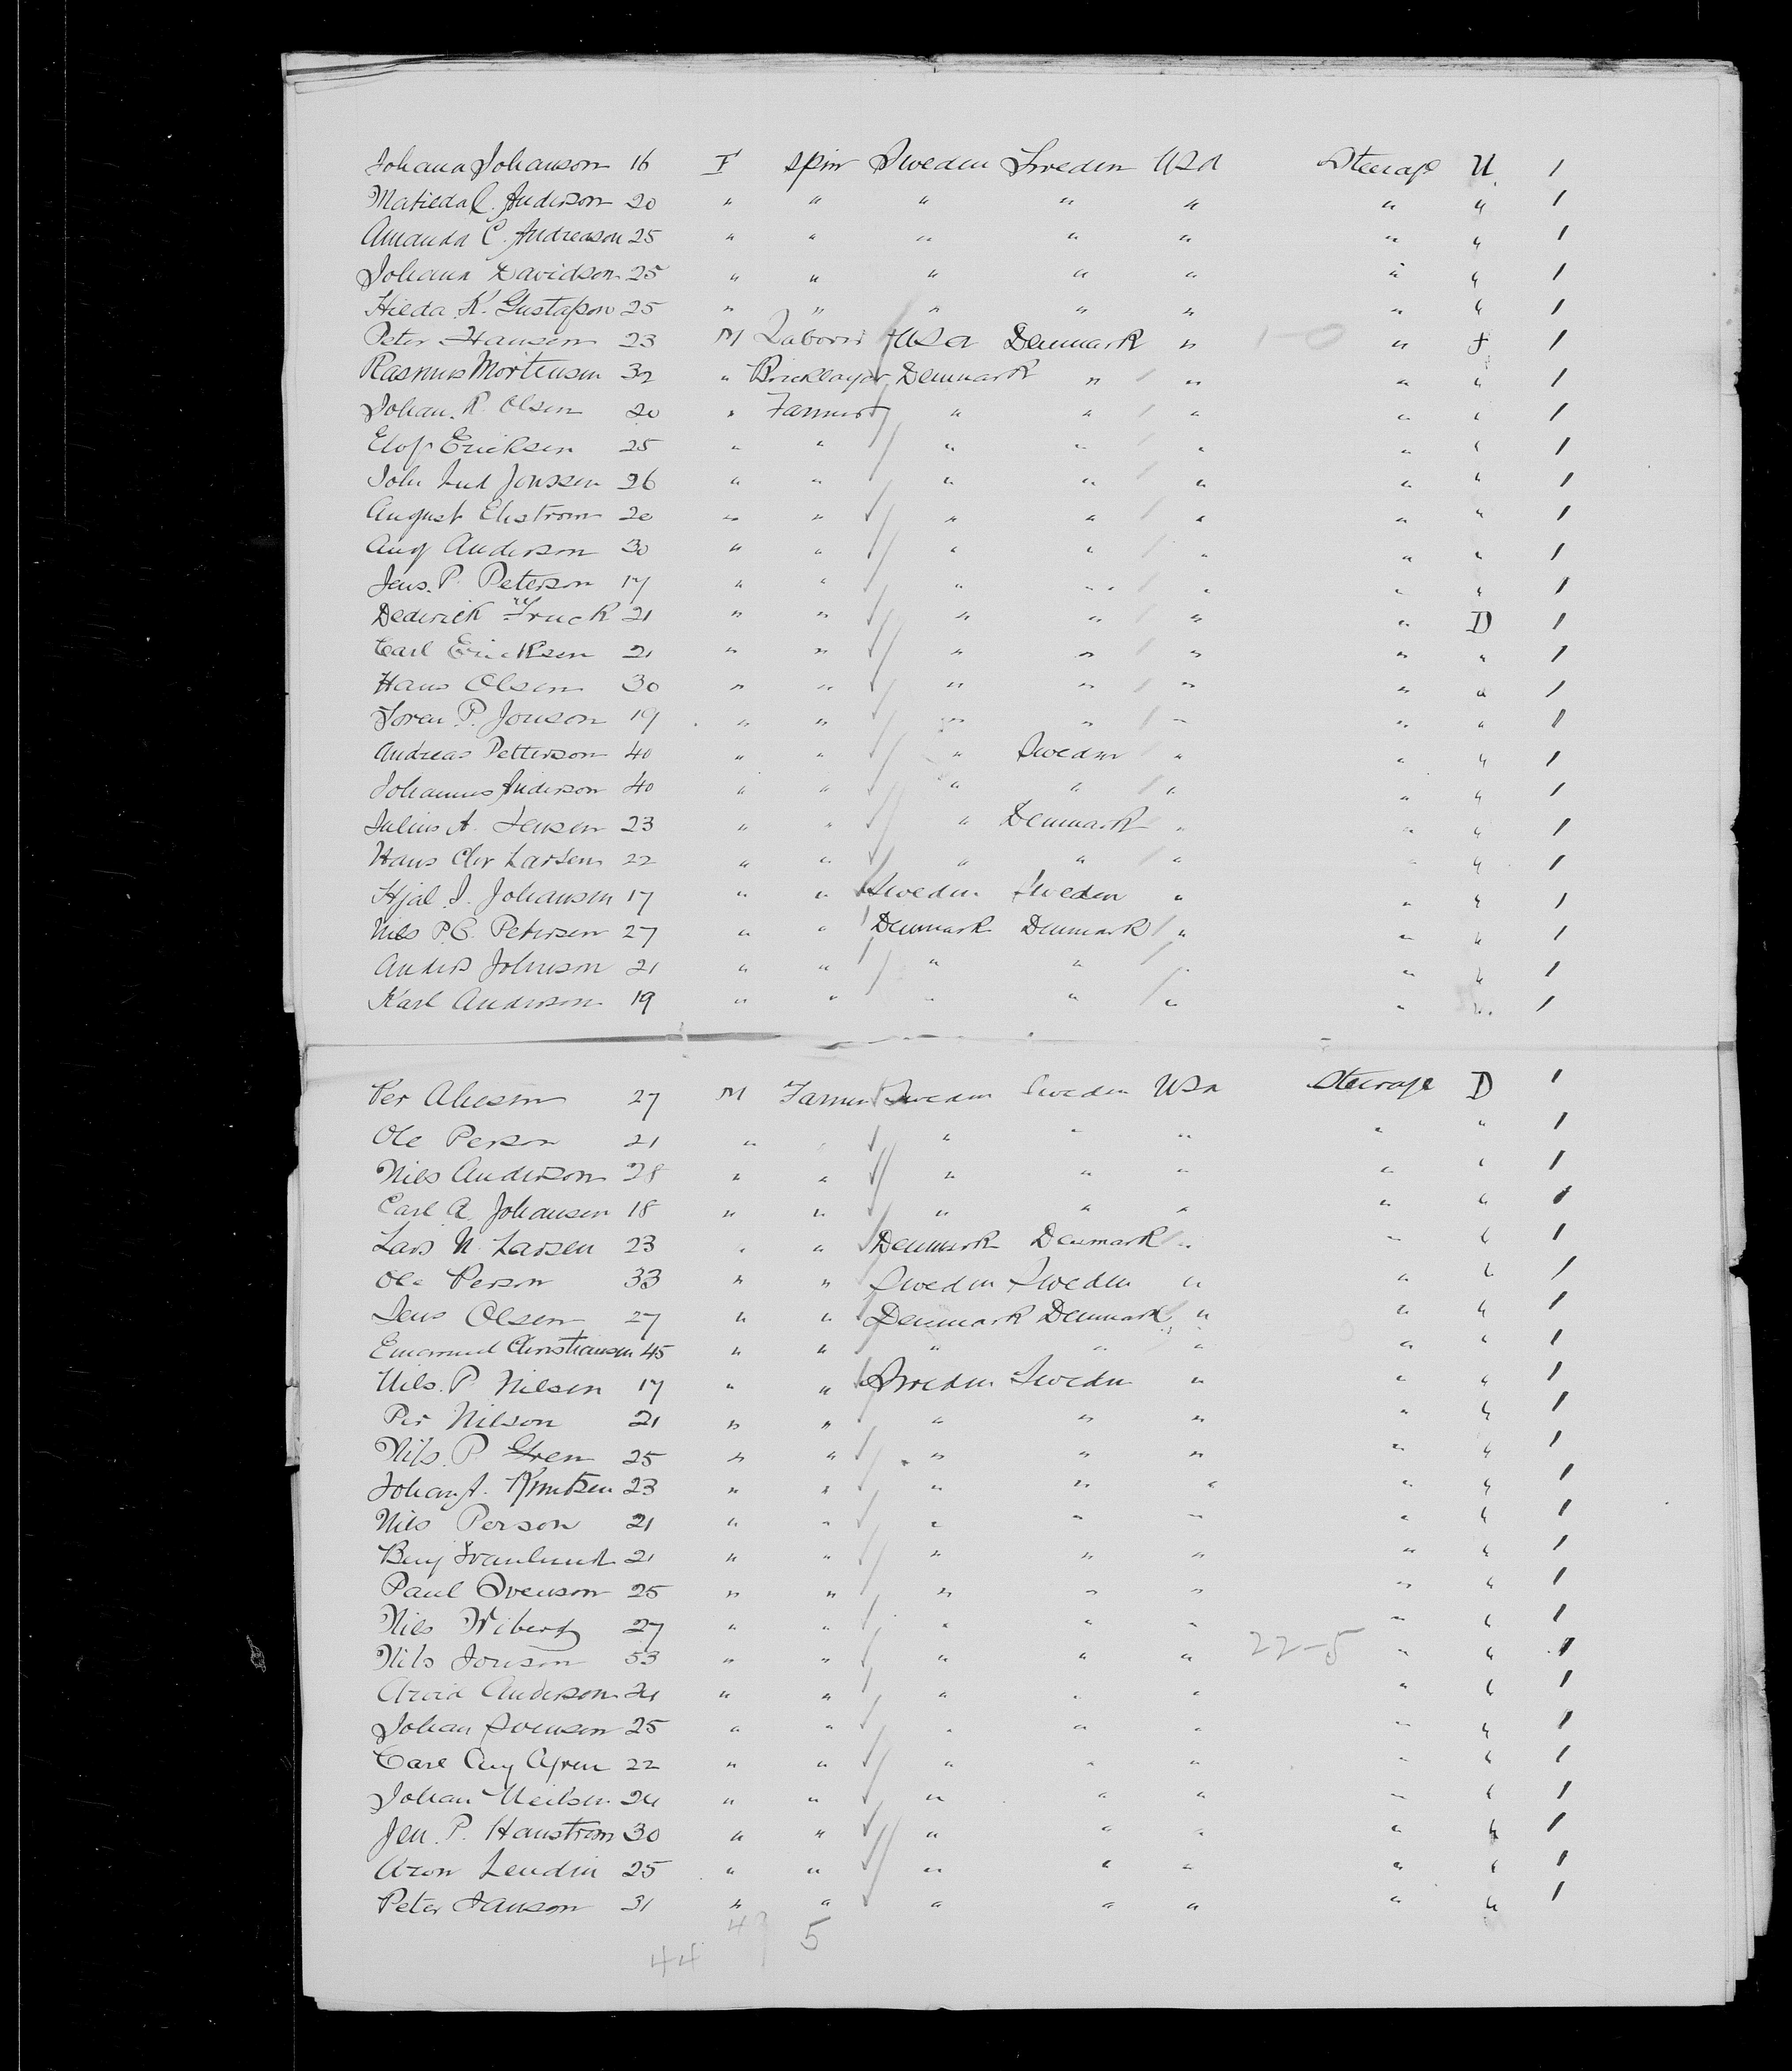 Johana Johanson 16 F spin Sweden Sweden USA Steerage U 1
Matieda C. Anderson 20 " " " " " " " 1
Amanda C. Andreason 25 " " " " " " " 1
Johana Davidson 25 " " " " " " " 1
Hilda K. Gustafson 25 " " " " " " " 1
Peter Hansen 23 M Laborer USA Denmark " 1-0 " f 1
Rasmus Mortensen 32 " Bricklayer Denmark " " " " 1
Johan R. Olsen 20 " Farmer " " " " " 1
Elof Ericksen 25 " " " " " " " 1
John Lud Jonssen 26 " " " " " " " 1
August Ekstrom 20 " " " " " " " 1
Aug Anderson 30 " " " " " " " 1
Jens. P. Peterson 17 " " " " " " " 1
Dederick Truck 21 " " " " " " D 1
Carl Ericksen 21 " " " " " " " 1
Hans Olsen 30 " " " " " " " 1
Soren P. Jonson 19 " " " " " " " 1
Andreas Petterson 40 " " " Sweden " " " 1
Johannes Anderson 40 " " " " " " " 1
Julius A. Jensen 23 " " " Denmark " " " 1
Hans Chr Larsen 22 " " " " " " 1
Hjal. J. Johansen 17 " " Sweden Sweden " " " 1
Nils P.C. Petersen 27 " " Denmark Denmark " " " 1
Anders Johnson 21 " " " " " " " 1
Karl Anderson 19 " " " " " " " 1
Per 27 M Farmer Sweden Sweden USA Steerage D 1
Ole Person 21 " " " " " " " 1
Nils Anderson 28 " " " " " " " 1
Carl A. Johansen 18 " " " " " " " 1
Lars N. Larsen 23 " " Denmark Denmark " " " 1
Ole Person 33 " " Sweden Sweden " " " 1
Jens Olsen 27 " " Denmark Denmark " " " 1
Emanuel Christiansen 45 " " " " " " " 1
Nils. P. Nilsen 17 " " Sweden Sweden " " " 1
Per Nilson 21 " " " " " " " 1
Nils. P. 25 " " " " " " " 1
Johan A. Knutsen 23 " " " " " " " 1
Nils Person 21 " " " " " " " 1
Benj 21 " " " " " " " 1
Paul Svenson 25 " " " " " " " 1
Nils Wiberg 27 " " " " " " " 1
Nils Jonson 53 " " " " " 22-5 " " 1
Arvid Anderson 21 " " " " " " " 1
Johan Svenson 25 " " " " " " " 1
Carl Aug 22 " " " " " " " 1
Johan Neilsen 24 " " " " " " " 1
Jen. P. Hanstrom 30 " " " " " " " 1
Aron Lendin 25 " " " " " " " 1
Peter Janson 31 " " " " " " " 1
49 5
44